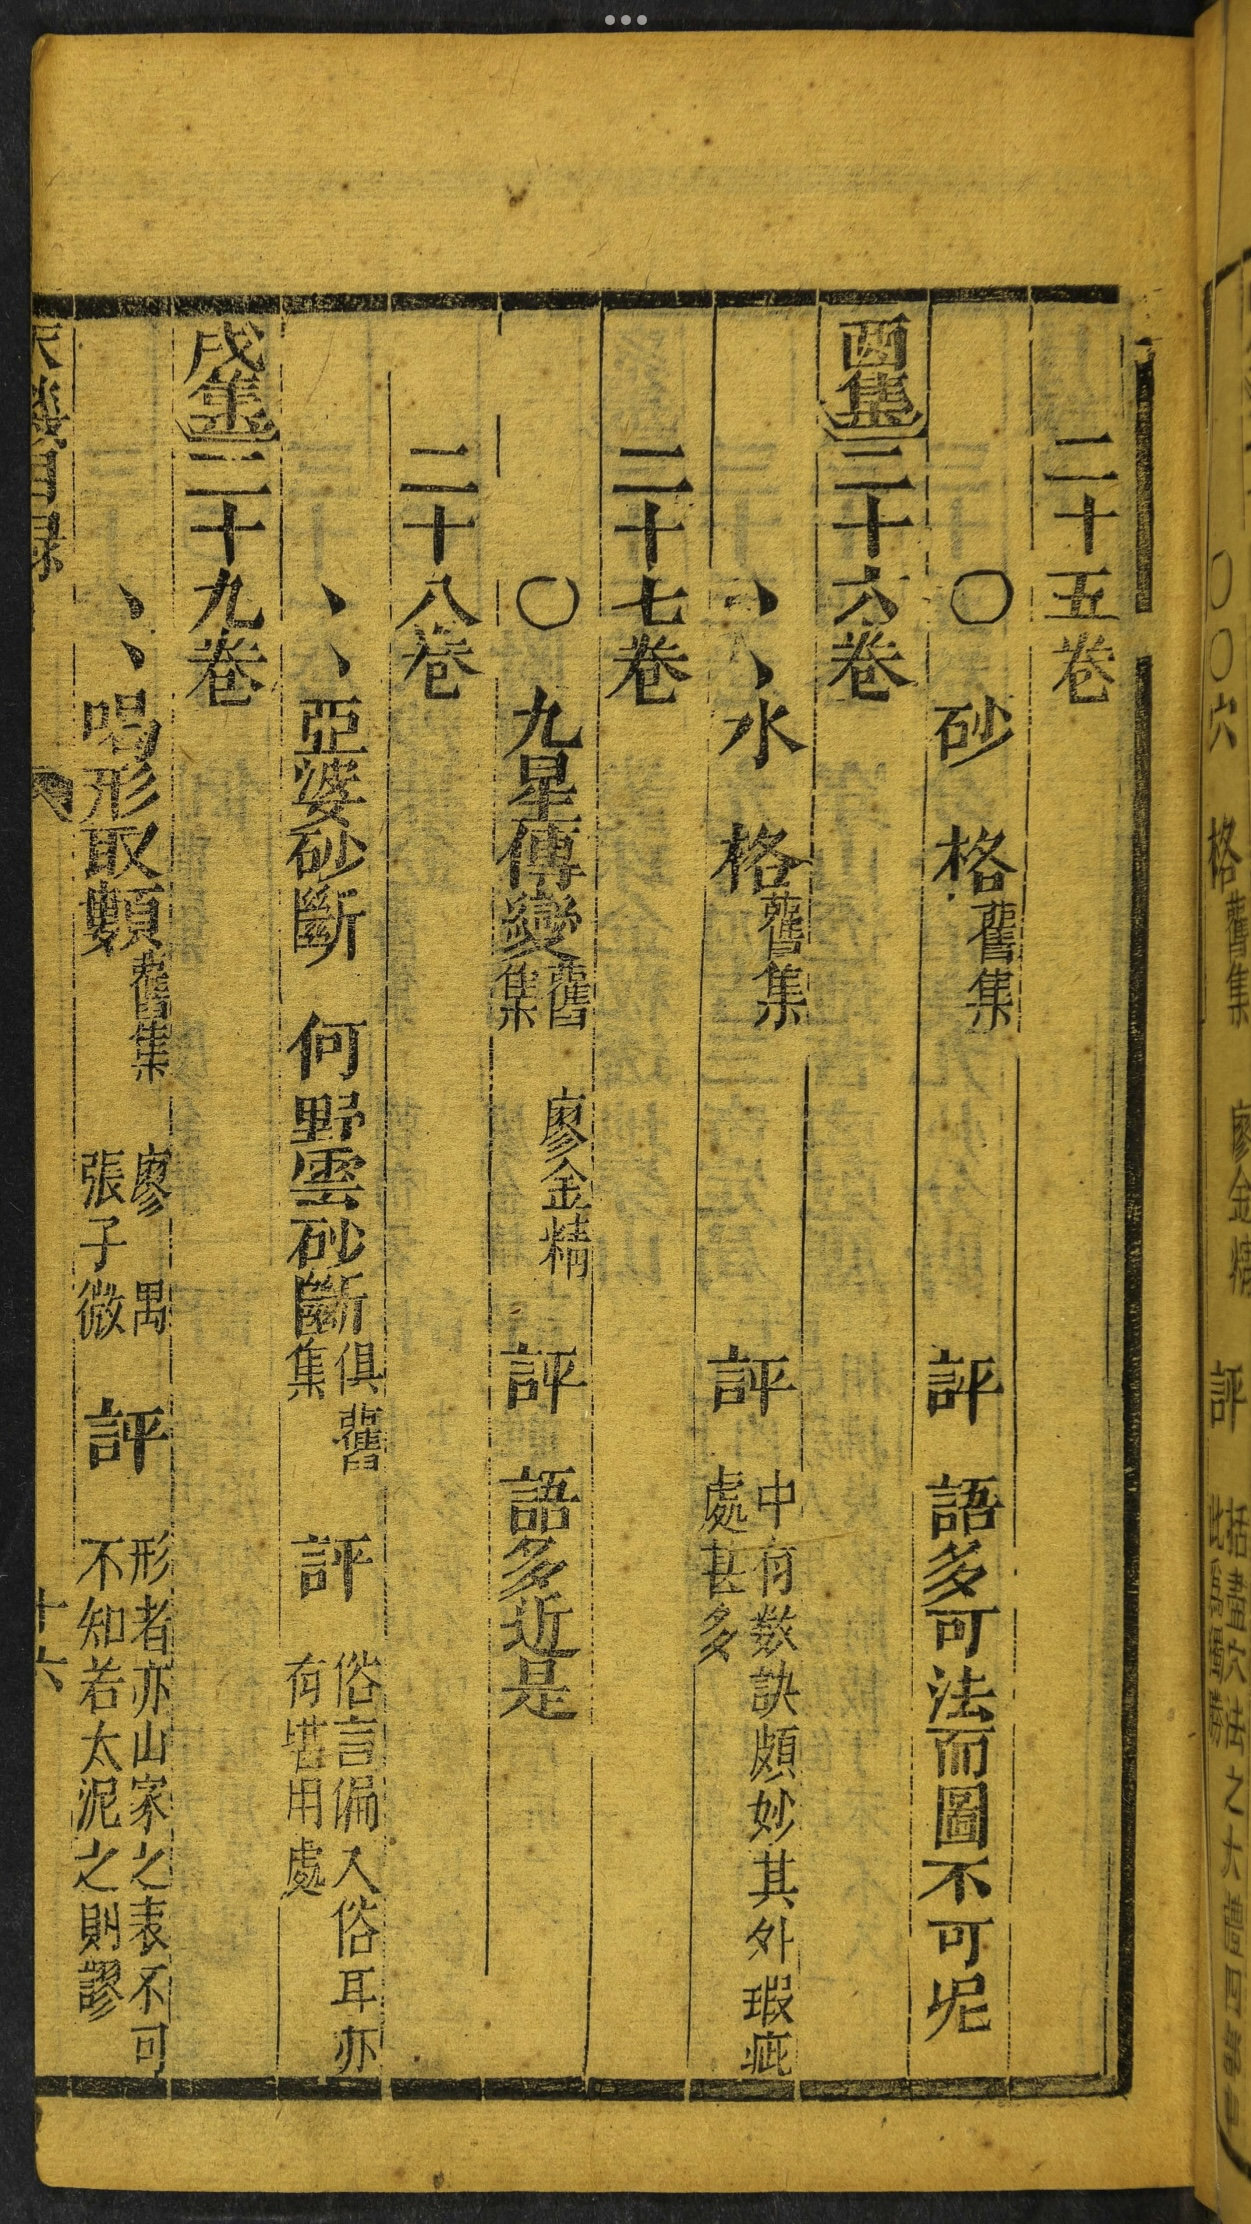 二十五卷
○ 砂 格 舊集 評 語多可法而圖不可泥
酉集 二十六卷
、、水 格 舊集 評 中有数訣頗妙其外瑕疵
處甚多
二十七卷
○ 九星傳變 舊集 廖金精 評 語多近是
二十八卷
、、亞婆砂斷 何野雲砂斷 俱舊集 評 俗言偏入俗耳亦
有堪用處
戌集 二十九卷
、、喝形取類 舊集 廖禹 張子微 評 形者亦山家之表不可
不知若太泥之則謬
天機目録 十六
○○穴 格 舊集 廖金精 評